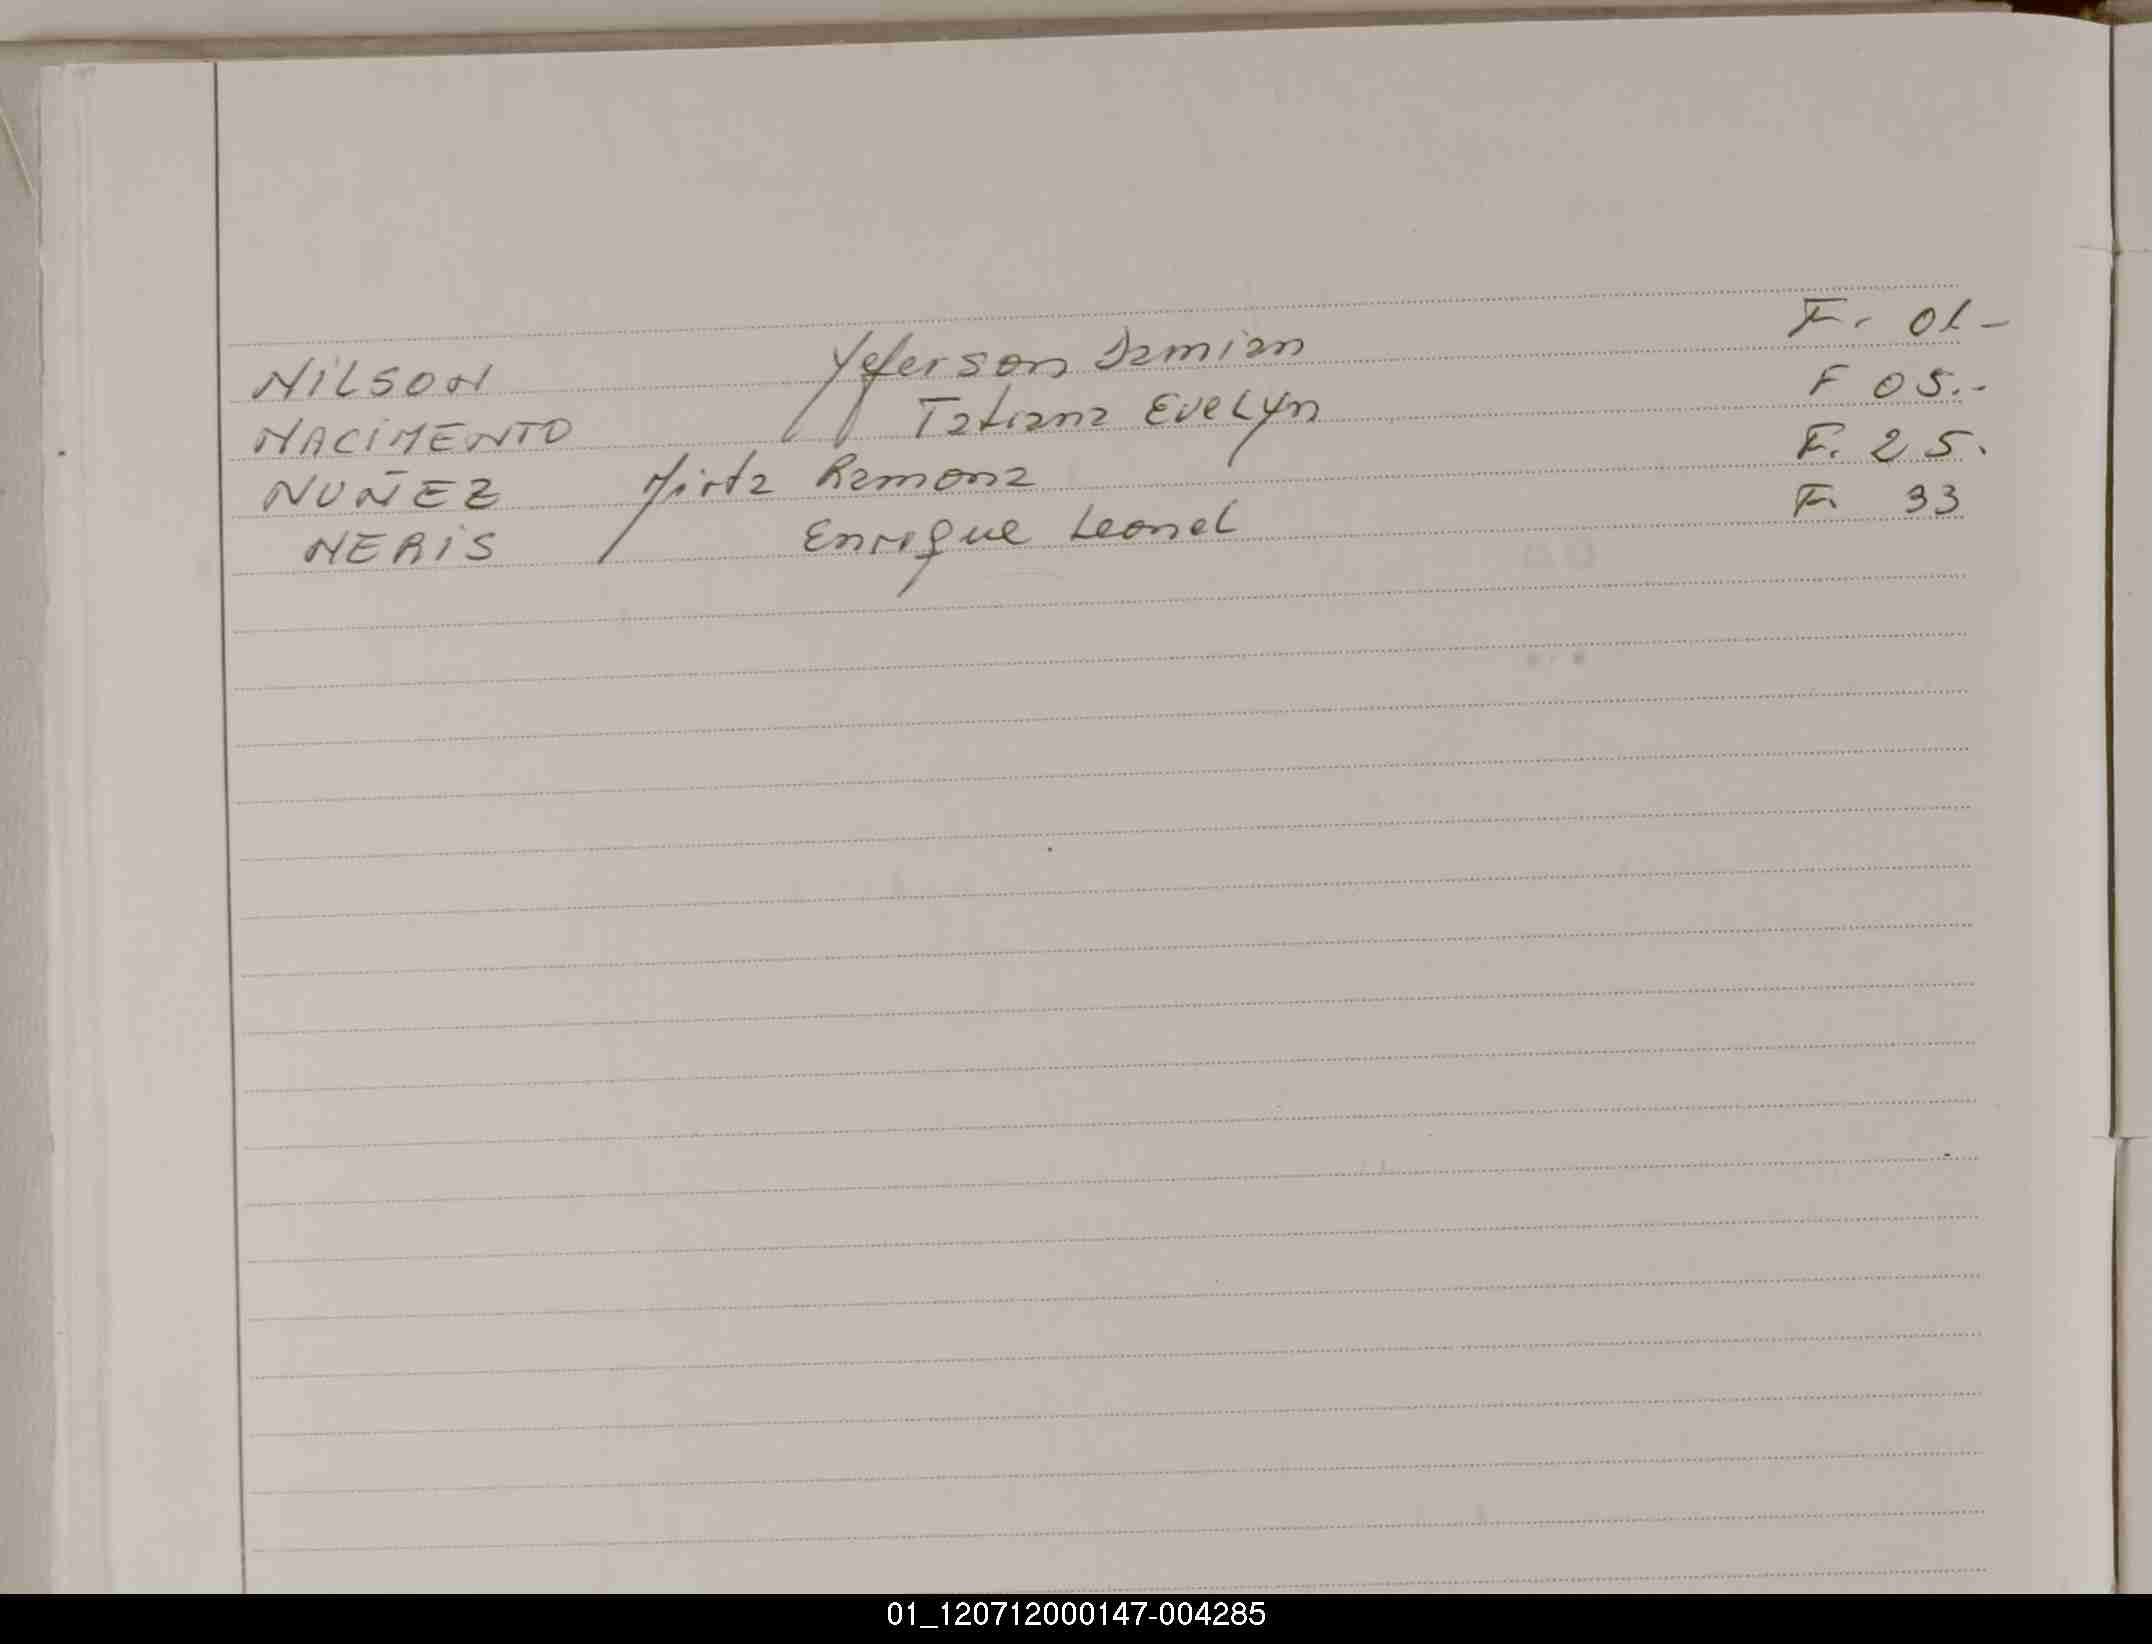 NILSON Yeferson Damian F. 01-
NACIMENTO Tatiana Evelyn F 05.-
NUÑEZ Mirta Ramona F. 25.
NERIS Enrique Leonel F. 33
01_120712000147-004285